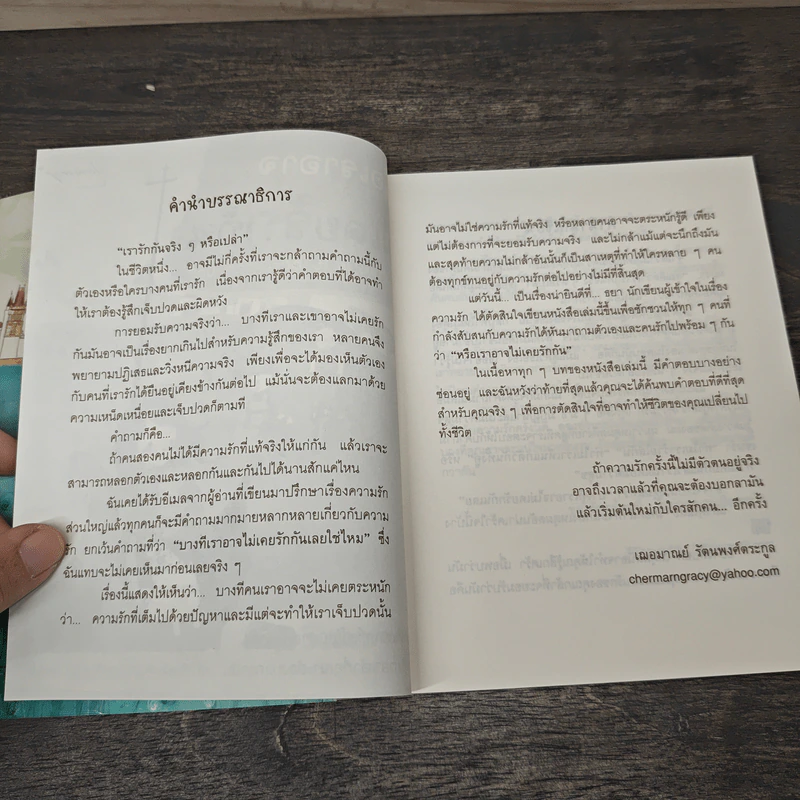 คำนำบรรณาธิการ
“เรารักกันจริง ๆ หรือเปล่า”
ในชีวิตหนึ่ง... อาจมีไม่กี่ครั้งที่เราจะกล้าถามคำถามนี้กับ
ตัวเองหรือใครบางคนที่เรารัก เนื่องจากเรารู้ดีว่าคำตอบที่ได้อาจทำ
ให้เราต้องรู้สึกเจ็บปวดและผิดหวัง
การยอมรับความจริงว่า... บางทีเราและเขาอาจไม่เคยรัก
กันมันอาจเป็นเรื่องยากเกินไปสำหรับความรู้สึกของเรา หลายคนจึง
พยายามปฏิเสธและวิ่งหนีความจริง เพียงเพื่อจะได้มองเห็นตัวเอง
กับคนที่เรารักได้ยืนอยู่เคียงข้างกันต่อไป แม้นั่นจะต้องแลกมาด้วย
ความเหน็ดเหนื่อยและเจ็บปวดก็ตามที
คำถามก็คือ...
ถ้าคนสองคนไม่ได้มีความรักที่แท้จริงให้แก่กัน แล้วเราจะ
สามารถหลอกตัวเองและหลอกกันและกันไปได้นานสักแค่ไหน
ฉันเคยได้รับอีเมลจากผู้อ่านที่เขียนมาปรึกษาเรื่องความรัก
ส่วนใหญ่แล้วทุกคนก็จะมีคำถามมากมายหลากหลายเกี่ยวกับความ
รัก ยกเว้นคำถามที่ว่า “บางทีเราอาจไม่เคยรักกันเลยใช่ไหม” ซึ่ง
ฉันแทบจะไม่เคยเห็นมาก่อนเลยจริง ๆ
เรื่องนี้แสดงให้เห็นว่า... บางทีคนเราอาจจะไม่เคยตระหนัก
ว่า... ความรักที่เต็มไปด้วยปัญหาและมีแต่จะทำให้เราเจ็บปวดนั้น
มันอาจไม่ใช่ความรักที่แท้จริง หรือหลายคนอาจจะตระหนักรู้ดี เพียง
แต่ไม่ต้องการที่จะยอมรับความจริง และไม่กล้าแม้แต่จะนึกถึงมัน
และสุดท้ายความไม่กล้าอันนั้นก็เป็นสาเหตุที่ทำให้ใครหลาย ๆ คน
ต้องทุกข์ทนอยู่กับความรักต่อไปอย่างไม่มีที่สิ้นสุด
แต่วันนี้... เป็นเรื่องน่ายินดีที่... ธยา นักเขียนผู้เข้าใจในเรื่อง
ความรัก ได้ตัดสินใจเขียนหนังสือเล่มนี้ขึ้นเพื่อชักชวนให้ทุก ๆ คนที่
กำลังสับสนกับความรักได้หันมาถามตัวเองและคนรักไปพร้อม ๆ กัน
ว่า “หรือเราอาจไม่เคยรักกัน”
ในเนื้อหาทุก ๆ บทของหนังสือเล่มนี้ มีคำตอบบางอย่าง
ซ่อนอยู่ และฉันหวังว่าท้ายที่สุดแล้วคุณจะได้ค้นพบคำตอบที่ดีที่สุด
สำหรับคุณจริง ๆ เพื่อการตัดสินใจที่อาจทำให้ชีวิตของคุณเปลี่ยนไป
ทั้งชีวิต
ถ้าความรักครั้งนี้ไม่มีตัวตนอยู่จริง
อาจถึงเวลาแล้วที่คุณจะต้องบอกลามัน
แล้วเริ่มต้นใหม่กับใครสักคน... อีกครั้ง
เฌอมาณย์ รัตนพงศ์ตระกูล
chermarngracy@yahoo.com